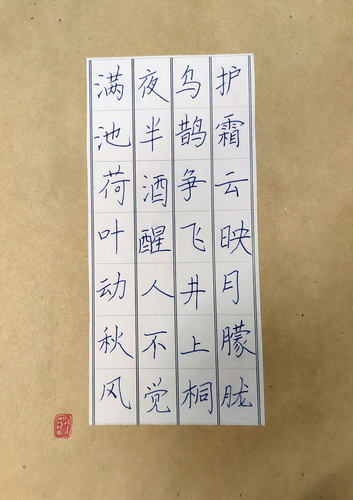 护霜云映月朦胧
乌鹊争飞井上桐
夜半酒醒人不觉
满池荷叶动秋风